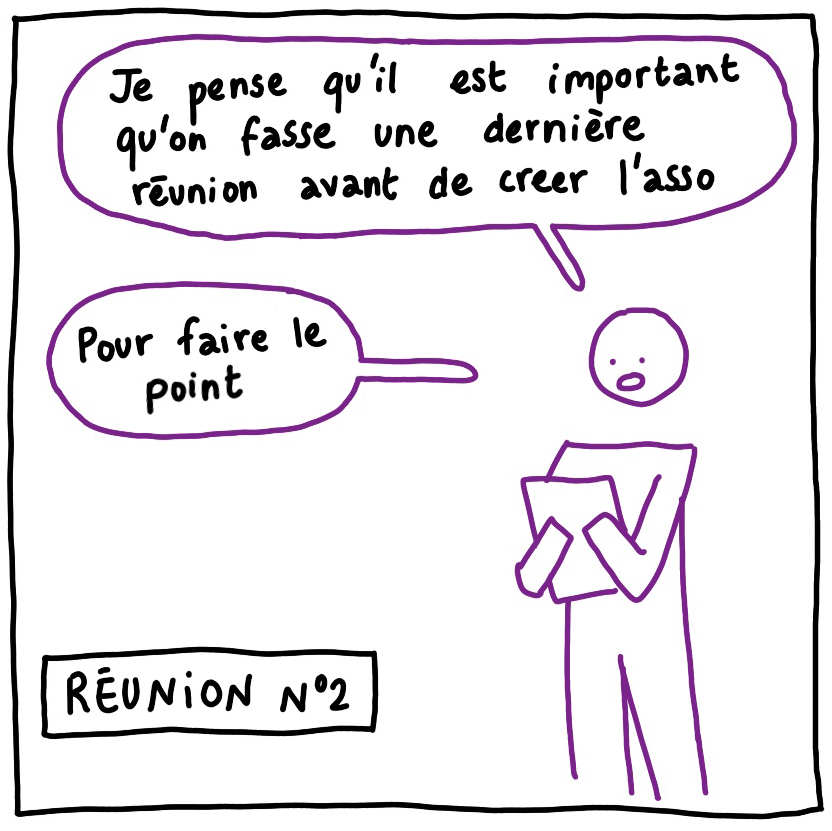 Je pense qu'il est important
qu'on fasse une dernière
réunion avant de creer l'asso
Pour faire le
point
RÉUNION N°2